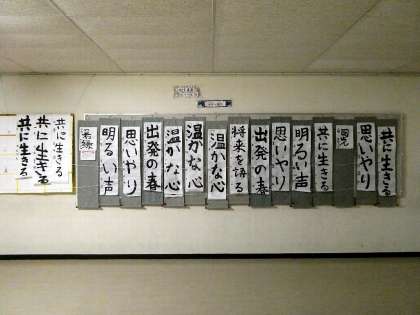 共に生きる
思いやり
共に生きる
明るい声
思いやり
出発の春
将来を語る
温かな心
温かな心
温かな心
出発の春
思いやり
明るい声
共に生きる
共に生きる
共に生きる